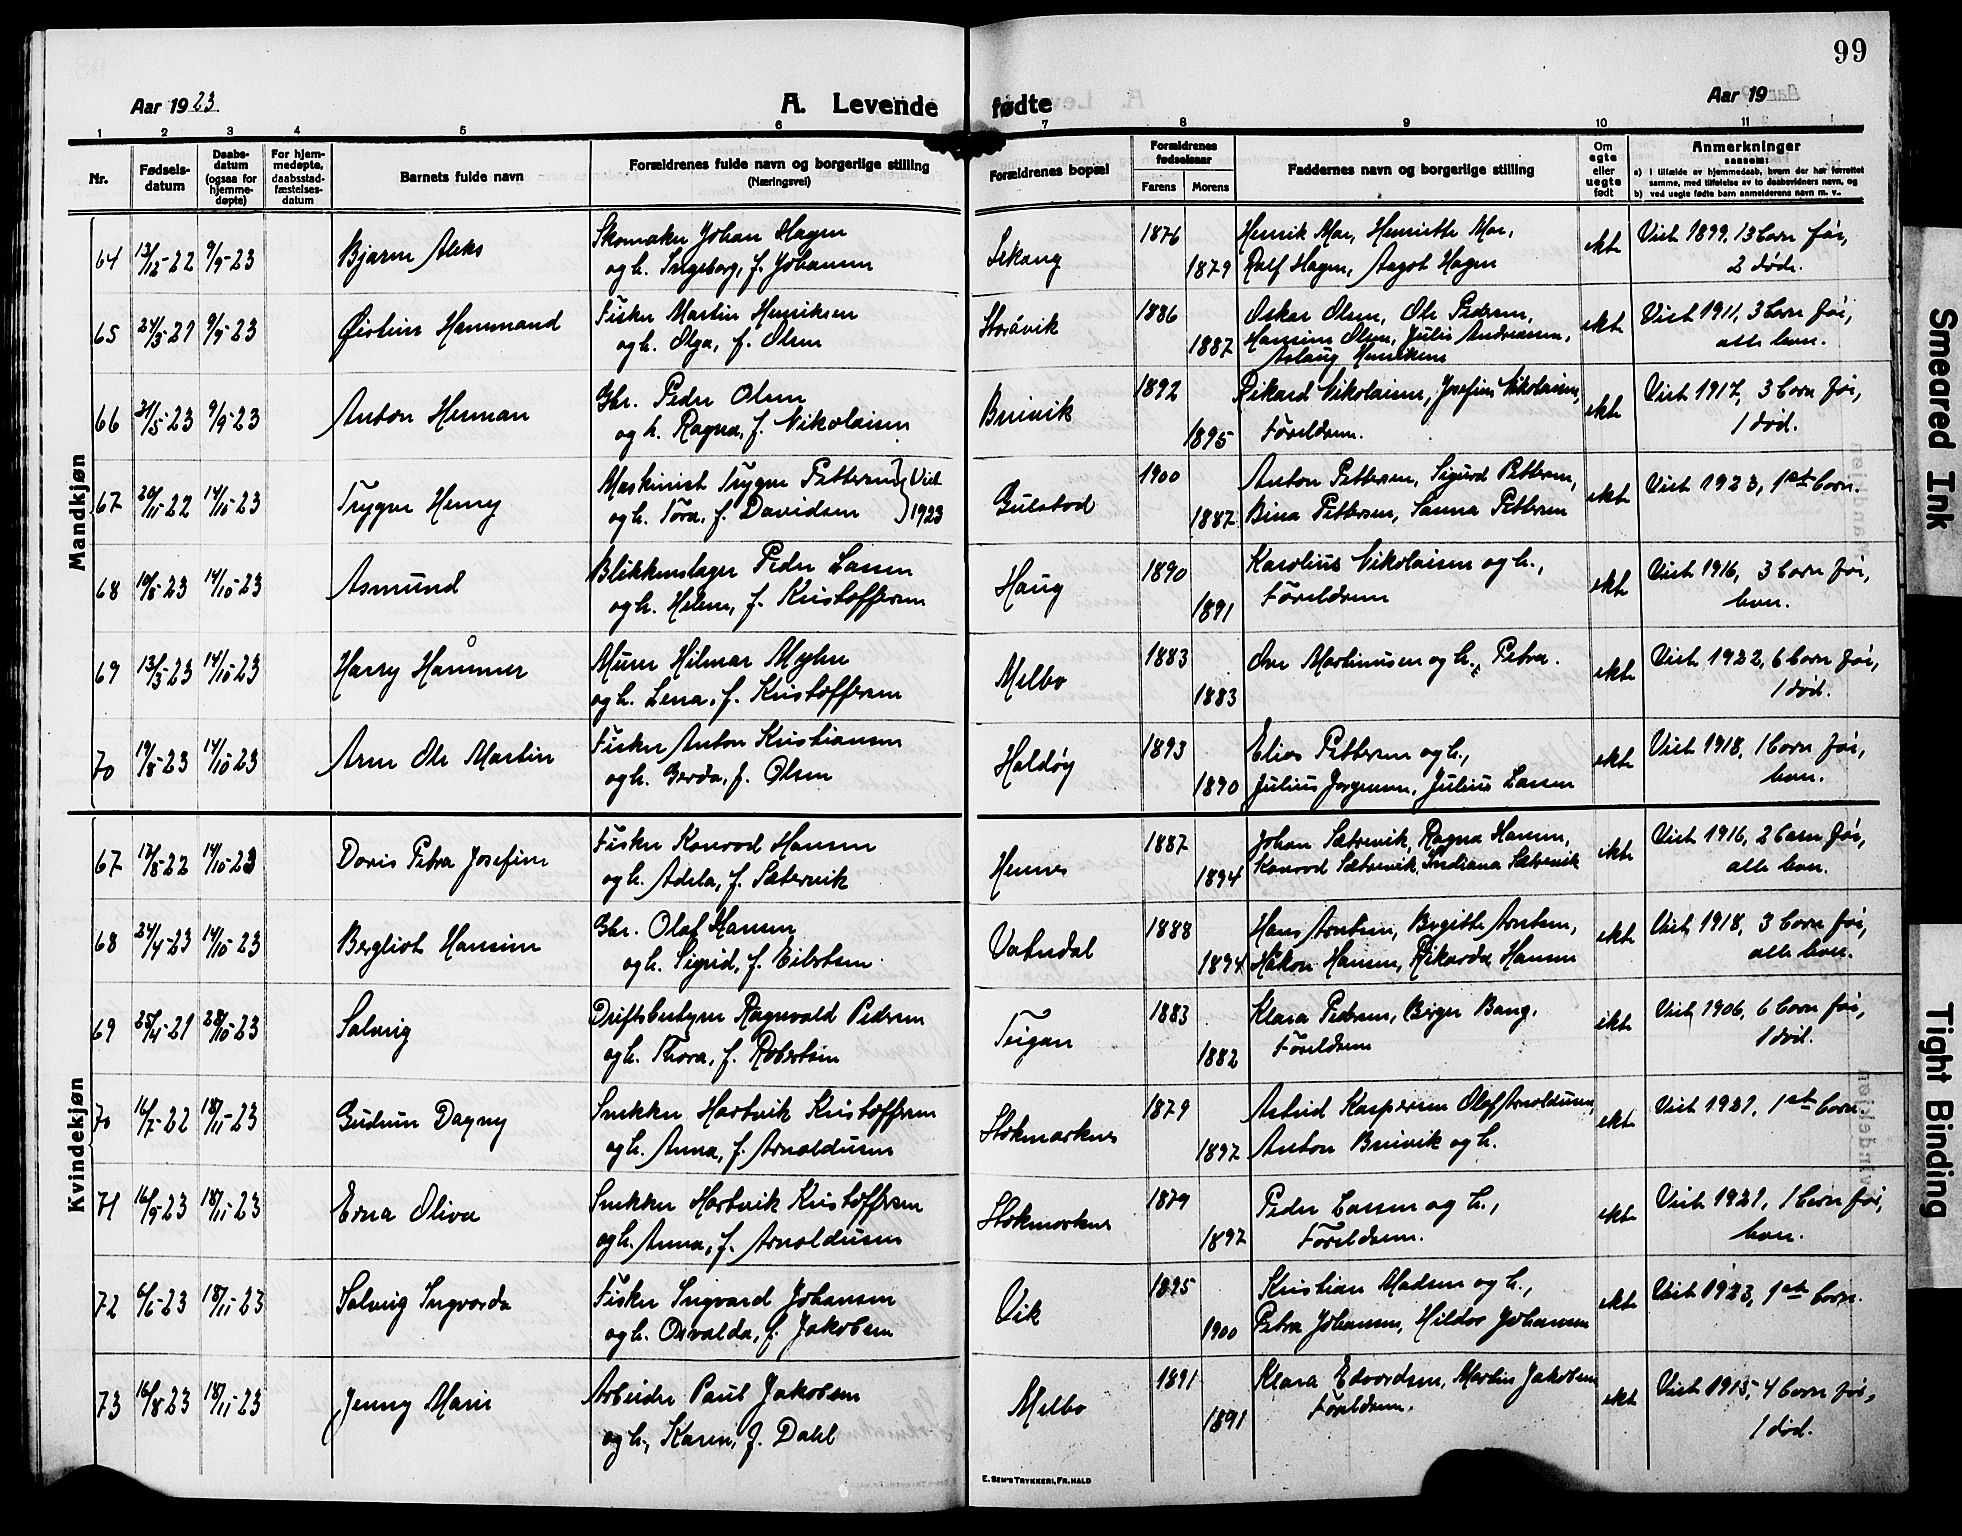 99
Aar 1923
A. Levende fødte
Aar 19
1 2 3 4 5 6 7 8 9 10 11
Nr.
Fødsels-
datum
Daabs-
datum
(ogsaa for
hjemme-
døpte)
For hjem-
medøpte,
daabsstad-
fæstelses-
datum
Barnets fulde navn
Forældrenes fulde navn og borgerlige stilling
(Næringsvei)
Forældrenes bopæl
Forældrenes
fødselsaar
Farens Morens
Faddernes navn og borgerlige stilling
Om
egte
eller
uegte
født
Anmerkninger
saasom:
a) I tilfælde av hjemmedaab, hvem der har forrettet
samme, med tilføielse av to daabsvidners navn, og
b) ved uegte fødte barn anmelderens navn m. v.
Mandkjøn
64 13/12-22 9/9-23 Bjarne Aleks Skomaker Johan Hagen 1876 Henrik Mar, Henriette Mar, Viet 1899, 13 born før,
og h. Ingeborg, f. Johansen Sekang 1879 Rolf Hagen, Aagot Hagen ekte 2 døde.
65 24/3-21 9/9-23 Øistein Hammand Fisker Martin Henriksen Storåvik 1886 Oskar Olsen, Ole Pedersen, ekte Viet 1911, 3 born før,
og h. Olga, f. Olsen 1887 Hansine Olsen, Julie Andreasen, alle lever.
Aslaug Henriksen
66 31/5-23 9/9-23 Anton Herman Gbr. Peder Olsen Breivik 1892 Rikard Nikolaisen, Josefine Nikolaisen, ekte Viet 1917, 3 born før,
og h. Ragna, f. Nikolaisen 1895 Foreldrene. 1 død.
67 20/11-22 14/10-23 Trygve Henry Maskinist Trygve Pettersen Viet Gulstad 1900 Anton Pettersen, Sigurd Pettersen, ekte Viet 1923, 1st born.
og h. Tora, f. Davidsen 1923 1887 Bina Pettersen, Sanna Pettersen
68 10/8-23 14/10-23 Asmund Blikkenslager Peder Lassen Haug 1890 Karolius Nikolaisen og h., ekte Viet 1916, 3 born før,
og h. Helene, f. Kristoffersen 1891 Foreldrene lever.
69 13/3-23 14/10-23 Harry Hammer Murer Hilmar Myhre Melbo 1883 Ove Martinusen og h., Petra. ekte Viet 1922, 6 born før,
og h. Lena, f. Kristoffersen 1883 1 død.
70 19/8-23 14/10-23 Arne Ole Martin Fisker Anton Kristiansen Haldøy 1893 Elias Pettersen og h., ekte Viet 1918, 1 born før,
og h. Gerda, f. Olsen 1890 Julius Jorgensen, Julius Lassen lever.
Kvindekjøn
67 17/8-22 14/10-23 Doris Petra Josefine Fisker Konrad Hansen Hennes 1887 Johan Sætervik, Ragna Hansen, ekte Viet 1916, 2 born før,
og h. Adela, f. Sætervik 1894 Konrad Sætervik, Indiana Sætervik alle lever.
68 24/4-23 14/10-23 Bergliot Hansine Gbr. Olaf Hansen Vatndal 1888 Hans Arntsen, Birgitte Arntsen, ekte Viet 1918, 3 born før,
og h. Sigrid, f. Eilertsen. 1894 Håkon Hansen, Rikarda Hansen alle lever.
69 25/4-21 28/10-23 Solveig Driftsbestyrer Ragnvald Pedersen Teigan 1883 Klara Pedersen, Birger Bang, ekte Viet 1906, 6 born før,
og h. Thora, f. Robertsen 1882 Foreldrene 1 død.
70 16/7-22 18/11-23 Gudrun Dagny Snekker Hartvik Kristoffersen Stokmarknes 1879 Astrid Kaspersen Olaf Arnoldusen, ekte Viet 1921, 1st born
og h. Anna, f. Arnoldusen 1897 Anton Breivik og h.
71 16/9-23 18/11-23 Edna Oliva Snekker Hartvik Kristoffersen Stokmarknes 1879 Peder Lassen og h., ekte Viet 1921, 1 born før,
og h. Anna, f. Arnoldusen 1897 Foreldrene. lever.
72 6/6-23 18/11-23 Solveig Ingvarda Fisker Ingvard Johansen Vik 1895 Kristian Madsen og h., ekte Viet 1923, 1st born.
og h. Osvalda, f. Jakobsen 1900 Petra Johansen, Hildor Johansen
73 16/8-23 18/11-23 Jenny Marie Arbeider Paul Jakobsen Melbo 1891 Klara Edvardsen, Martin Jakobsen ekte Viet 1915, 4 born før,
og h., Karen, f. Dahl 1891 Foreldrene. 1 død.
E. SEM'S TRYKKERI, FR.HALD
Smeared Ink
Tight Binding